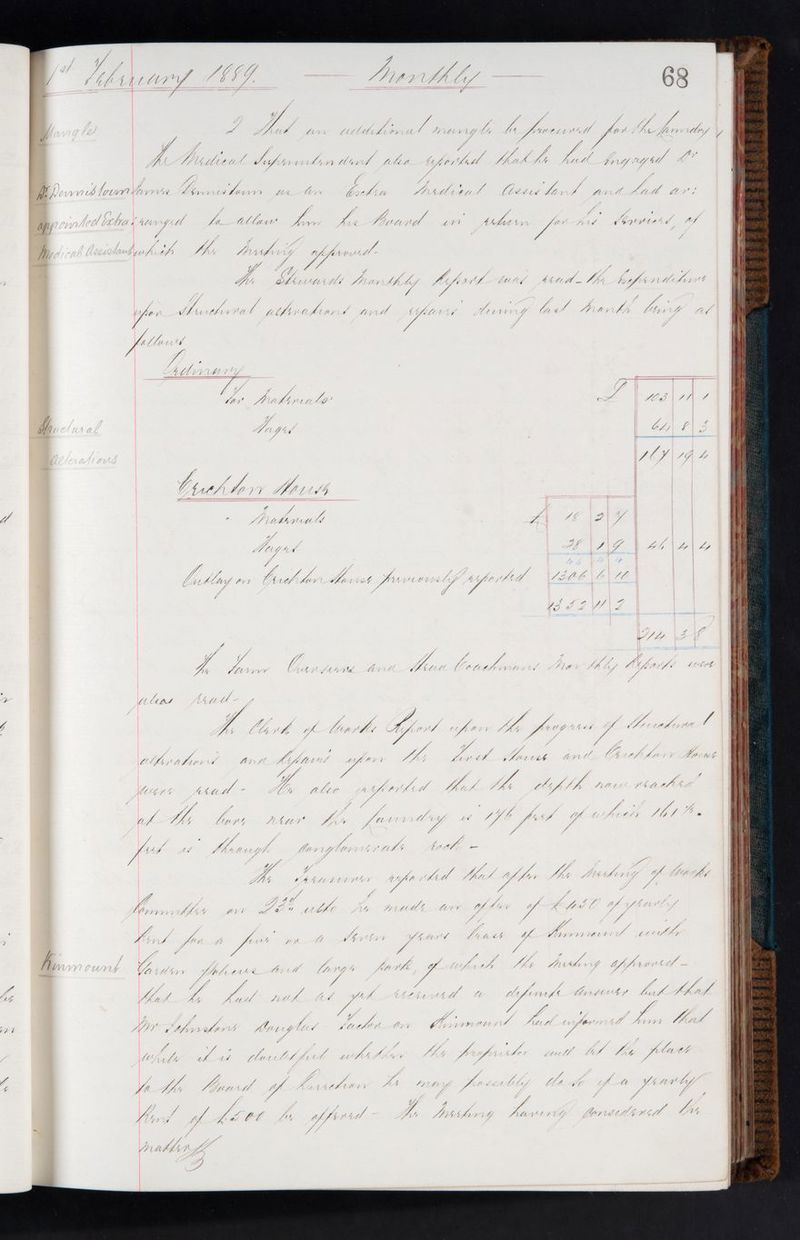 1st February 1889. Monthly 68
Mangle
2 That an additional mangle be procured for the laundry
The Medical Superintendent also reported that he had engaged Dr
Dr Dennistoun
James Dennistoun as an Extra Medical Assistant and had ar:
appointed Extra
:ranged to allow him his Board in return for his Services, of
Medical Assistant
which the Meeting approved -
The Stewards Monthly Report was read - the Expenditure
upon Structural alterations and repairs during last Month being as
follows
Ordinary
For Materials £ 103 11 1
Structural
Wages 64 8 3
alterations
167 19 4
Crichton House
" Materials £ 18 2 7
Wages 28 1 9 46 4 4
46 4 4
Outlay on Crichton House previously reported 1306 6 10
1352 11 2
214 3 8
The Farm Overseers and Head Coachmans Monthly Reports were
also read -
The Clerk of Works Report upon the progress of Structural
alterations and Repairs upon the First House and Crichton House
were read - He also reported that the depth now reached
at the bore near the laundry is 176 feet of which 161 ½
feet is through conglomerate rock -
The Treasurer reported that after the Meeting of Works
Committee on 23rd ulto he made an offer of £450 of yearly
Rent for a five or a Seven years lease of Kinmount with
Kinmount
Garden policies and large park, of which the Meeting approved -
that he had not as yet received a definite answer but that
Mr Johnstone Douglas' Factor on Kinmount had informed him that
while it is doubtful whether the proprietor will let the place
to the Board of Direction he may possibly do so if a yearly
Rent of £500 be offered - The Meeting having considered the
matter